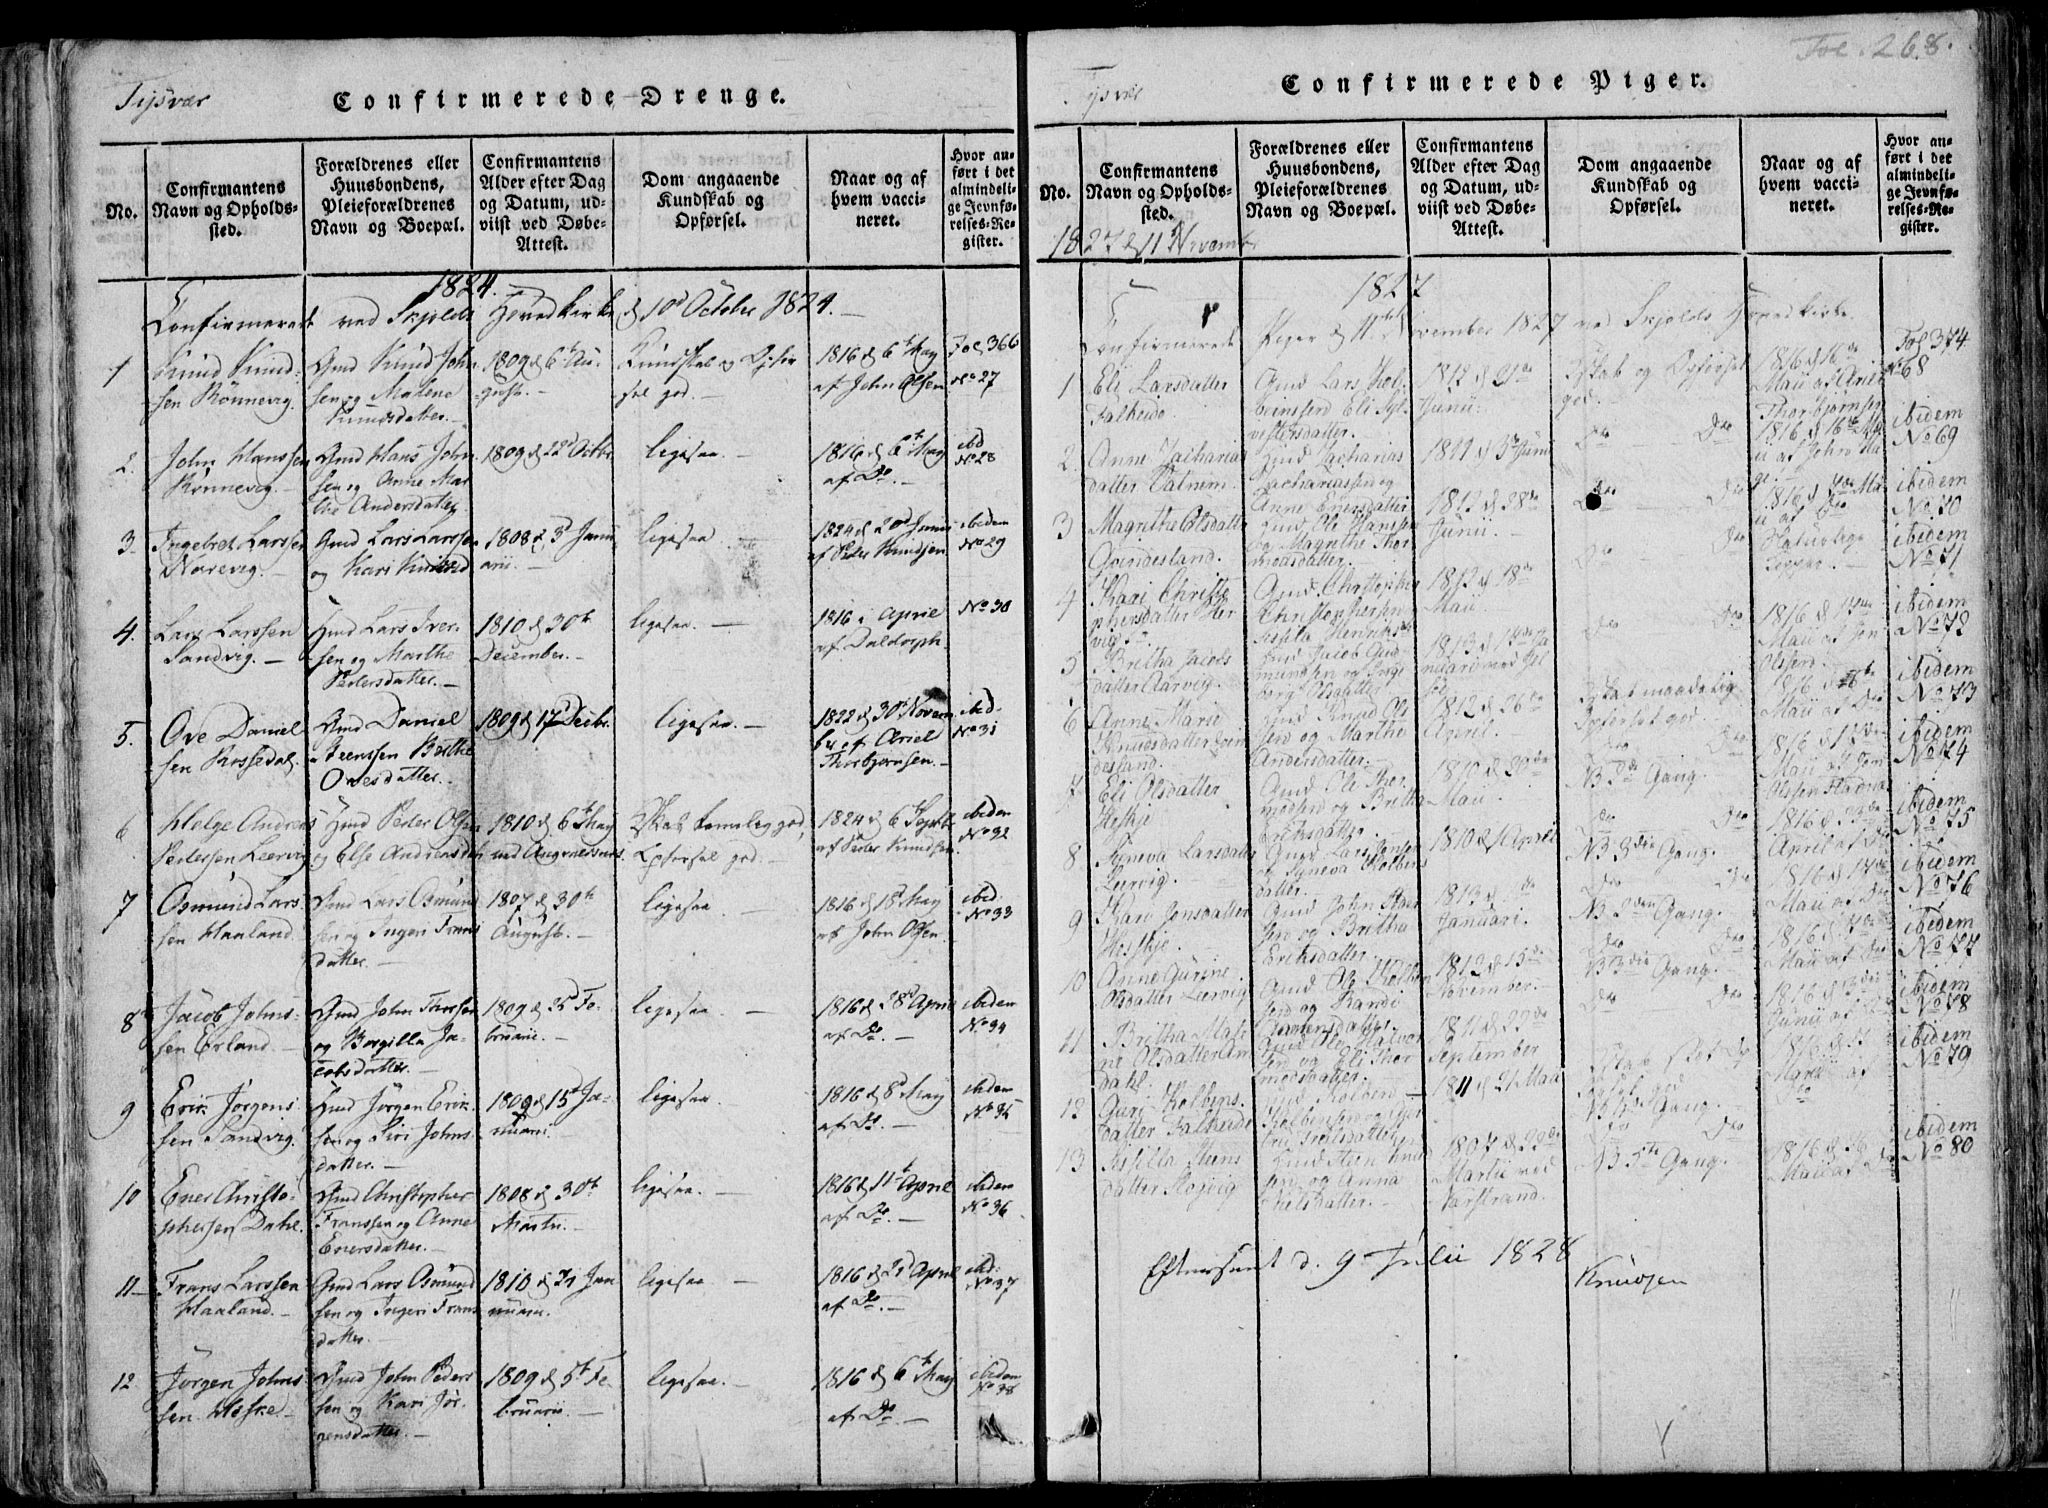 Tysvær
Confirmerede Drenge.
No.
Confirmantens
Navn og Opholds-
sted.
Forældrenes eller
Huusbondens,
Pleieforældrenes
Navn og Boepæl.
Confirmantens
Alder efter Dag
og Datum, ud-
viist ved Døbe-
Attest.
Dom angaaende
Kundskab og
Opførsel.
Naar og af
hvem vacci-
neret.
Hvor an-
ført i det
almindeli-
ge Jevnfø-
relses-Re-
gister.
1824.
Confirmerede ved Skjolds Hovedkirke d 10d Octobr 1824.
1
Knud Knud-
sen Rönnevig.
Gmd Knud John-
sen og Malene
Knudsdatter.
1809 d 6th Au-
gust.
Kundskab og Opfør-
sel god.
1816 d 6th May
af John Olsen
Fol 366
No 27
2.
John Hanssen
Rönnevig.
Gmd Hans John-
sen og Anne Mar-
the Andersdatter
1809 d 22d Octbr.
ligesaa.
1816 d 6th May
af Do.
ibd
No 28
3.
Ingebret Larssen
Norevig.
Gmd Lars Larssen
og Kari Knutsd
1808 d 3d Janu-
arii.
ligesaa
1824 d 20d Junii
af Peder Knudsen
ibidem
No 29
4.
Lars Larssen
Sandvig.
Hmd Lars Iver-
sen og Marthe
Pedersdatter.
1810 d 30th
December.
ligesaa.
1816 i April
af Daldorph
No 30
5.
Ove Daniel-
sen Rossedal.
Gmd Daniel
Steenssen Berthe
Ovesdatter.
1809 d 17d Decbr.
ligesaa.
1822 d 30th Novem-
br af Ariel
Thorbjørnsen.
ibed-
No 31
6
Helge Andreas
Pedersen Leervig
Hmd Peder Olsen
og Else Andreasdtr
1810 d 6th May
ved Augnesuns.
Kskab temelig god,
Opførsel god.
1824 d 6th Septbr
af Peder Knudsen.
ibidem
No 32
7
Osmund Lars-
sen Haaland.
Gmd Lars Osmund-
sen og Ingeri Frans-
datter.
1807 d 30th
August.
ligesaa
1816 d 18d May
af John Olsen.
ibid.
No 33
8
Jacob Johns-
sen Erland.
Gmd John Thorsen
og Borgilla Ja-
cobsdatter.
1809 d 25d Fe-
bruarii.
ligesaa
1816 d 28d April
af Do.
ibidem
No 34
9
Erik Jørgens-
sen Sandvig.
Hmd Jørgen Erik-
sen og Siri Johns-
datter.
1809 d 15d Ja-
nuarii.
ligesaa.
1816 d 8d May
af Do.
ibidem
No 35
10
Ener Christo-
phersen Dahl.
Gmd Christopher
Franssen og Anne
Enersdatter.
1808 d 30th
Martii.
ligesaa.
1816 d 11th April
af Do.
ibidem
No 36
11
Frans Larssen
Haaland.
Gmd Lars Osmund-
sen og Ingeri Frans-
datter.
1810 d 21 Jan-
nuarii.
ligesaa
1816 d 21d April
af Do.
ibd:
No 37
12
Jørgen Johns-
sen Heske
Gmd John Peder-
sen og Kari Jör-
gensdatter.
1809 d 5th Fe-
bruarii.
ligesaa.
1816 d 6th May
af Do.
ibidem
No 38
Fol. 268.
Tysvær
Confirmerede Piger.
No.
Confirmantens
Navn og Opholds-
sted.
Forældrenes eller
Huusbondens,
Pleieforældrenes
Navn og Boepæl.
Confirmantens
Alder efter Dag
og Datum, ud-
viist ved Døbe-
Attest.
Dom angaaende
Kundskab og
Opførsel.
Naar og af
hvem vacci-
neret.
Hvor an-
ført i det
almindeli-
ge Jevnfø-
relses-Re-
gister.
1827 d 11 Novemb
1827
Confirmerede Piger d 11th November 1827 ved Skjolds Hovedkirke.
1
Eli Larsdatter
Falheide
Gmd Lars Kol-
beinssen Eli Syl-
vestersdatter.
1812 d 21de
Junii.
Kskab og Opførsel
god.
1816 d 16de
Maii af Ariel
Thorbjørnsen
Fol 374
No 68
2.
Anne Zacharias-
datter Vatnem.
Hmd Zacharias
Zachariassen og
Anne Enersdatter
1811 d 3die Juni
Do Do
1816 d 16de Ma-
ii af John Hu-
ge.
ibidem
No 69
3
Magrithe Olsdatter
Qvindesland.
Hmd Ole Hanssen
og Magrithe Thor-
modsdatter.
1812 d 28de
Junii.
Do Do
1816 d Ma-
ii af Do
ibidem
No 70
4
Kari Christo-
phersdatter Her-
vig.
Gmd Christopher
Christophersen
Sissila Henriksdr
1812 d 18de
Maii.
Do Do
Naturlige
Kopper.
ibidem
No 71
5
Britha Jacobs-
datter Aarvig.
Hmd Jacob Gud-
mundsen og Inge-
borg Olsdatter
1813 d 14de Ja-
nuarii
Do Do
1816 d
Maii af Jon
Olssen.
ibidem
No 72
6
Anne Marie
Knudsdatter Qvin-
desland.
Gmd Knud Ols-
sen og Marthe
Andersdatter.
1812 d 26de
April.
Kskab maadelig
Opførsel god.
1816 d
Maii af Do
ibidem
No 73
7
Eli Olsdatter
Heskje
Gmd Ole Thor-
modsen og Britha
Eriksdatter.
1810 d 20de
Maii.
Do Do
NB 3de Gang.
1816 d 17de
Maii af Jon
Olssen
ibidem
No 74
8
Syneva Larsdatter
Leervig.
Gmd Lars Jonsen
og Syneva Kolbens-
datter.
1810 d April
Do Do
NB 3die Gang.
1816 d 22de
April af Do
ibidem
No 75
9
Kari Jonsdatter
Heskje.
Gmd John
og Britha
Eriksdatter.
1813 d 1ste
Januari.
Do Do
NB 2den Gang.
1816 d 17de
Maii af Do
ibidem
No 76
10
Anne Gurine
Olsdatter Leervig
Gmd Ole Kolben-
sen og Randi
1812 d 15de
November.
Do Do
NB 3die Gang.
1816 d
Maii af Do
ibidem
No 77
11
Britha Mal-
ne Olsdatter Am-
dahl.
Gmd Ole Halvor-
sen og Eli Thor-
modsdatter.
1811 d 22de
September
Do Do
1816 d 3die
Junii af Do
ibidem
No 78
12
Guri Kolbens-
datter Falheide
Hmd Kolbend
Kolbensen og
1811 d 21 Maii
Kskab slet Op-
førsel god
Gang.
1816 d
Maii af
Do
ibidem
No 79
13
Sissilla Steens-
datter Stogvig
Hmd Steen Knud-
sen og Anna
Nielsdatter.
1807 d 22de
Martii ved
Varstrand.
Do Do
NB 5te Gang.
1816 d 26
Maii af Do
ibidem
No 80
Efterseet d. 9 Julii 1828
Knudsen